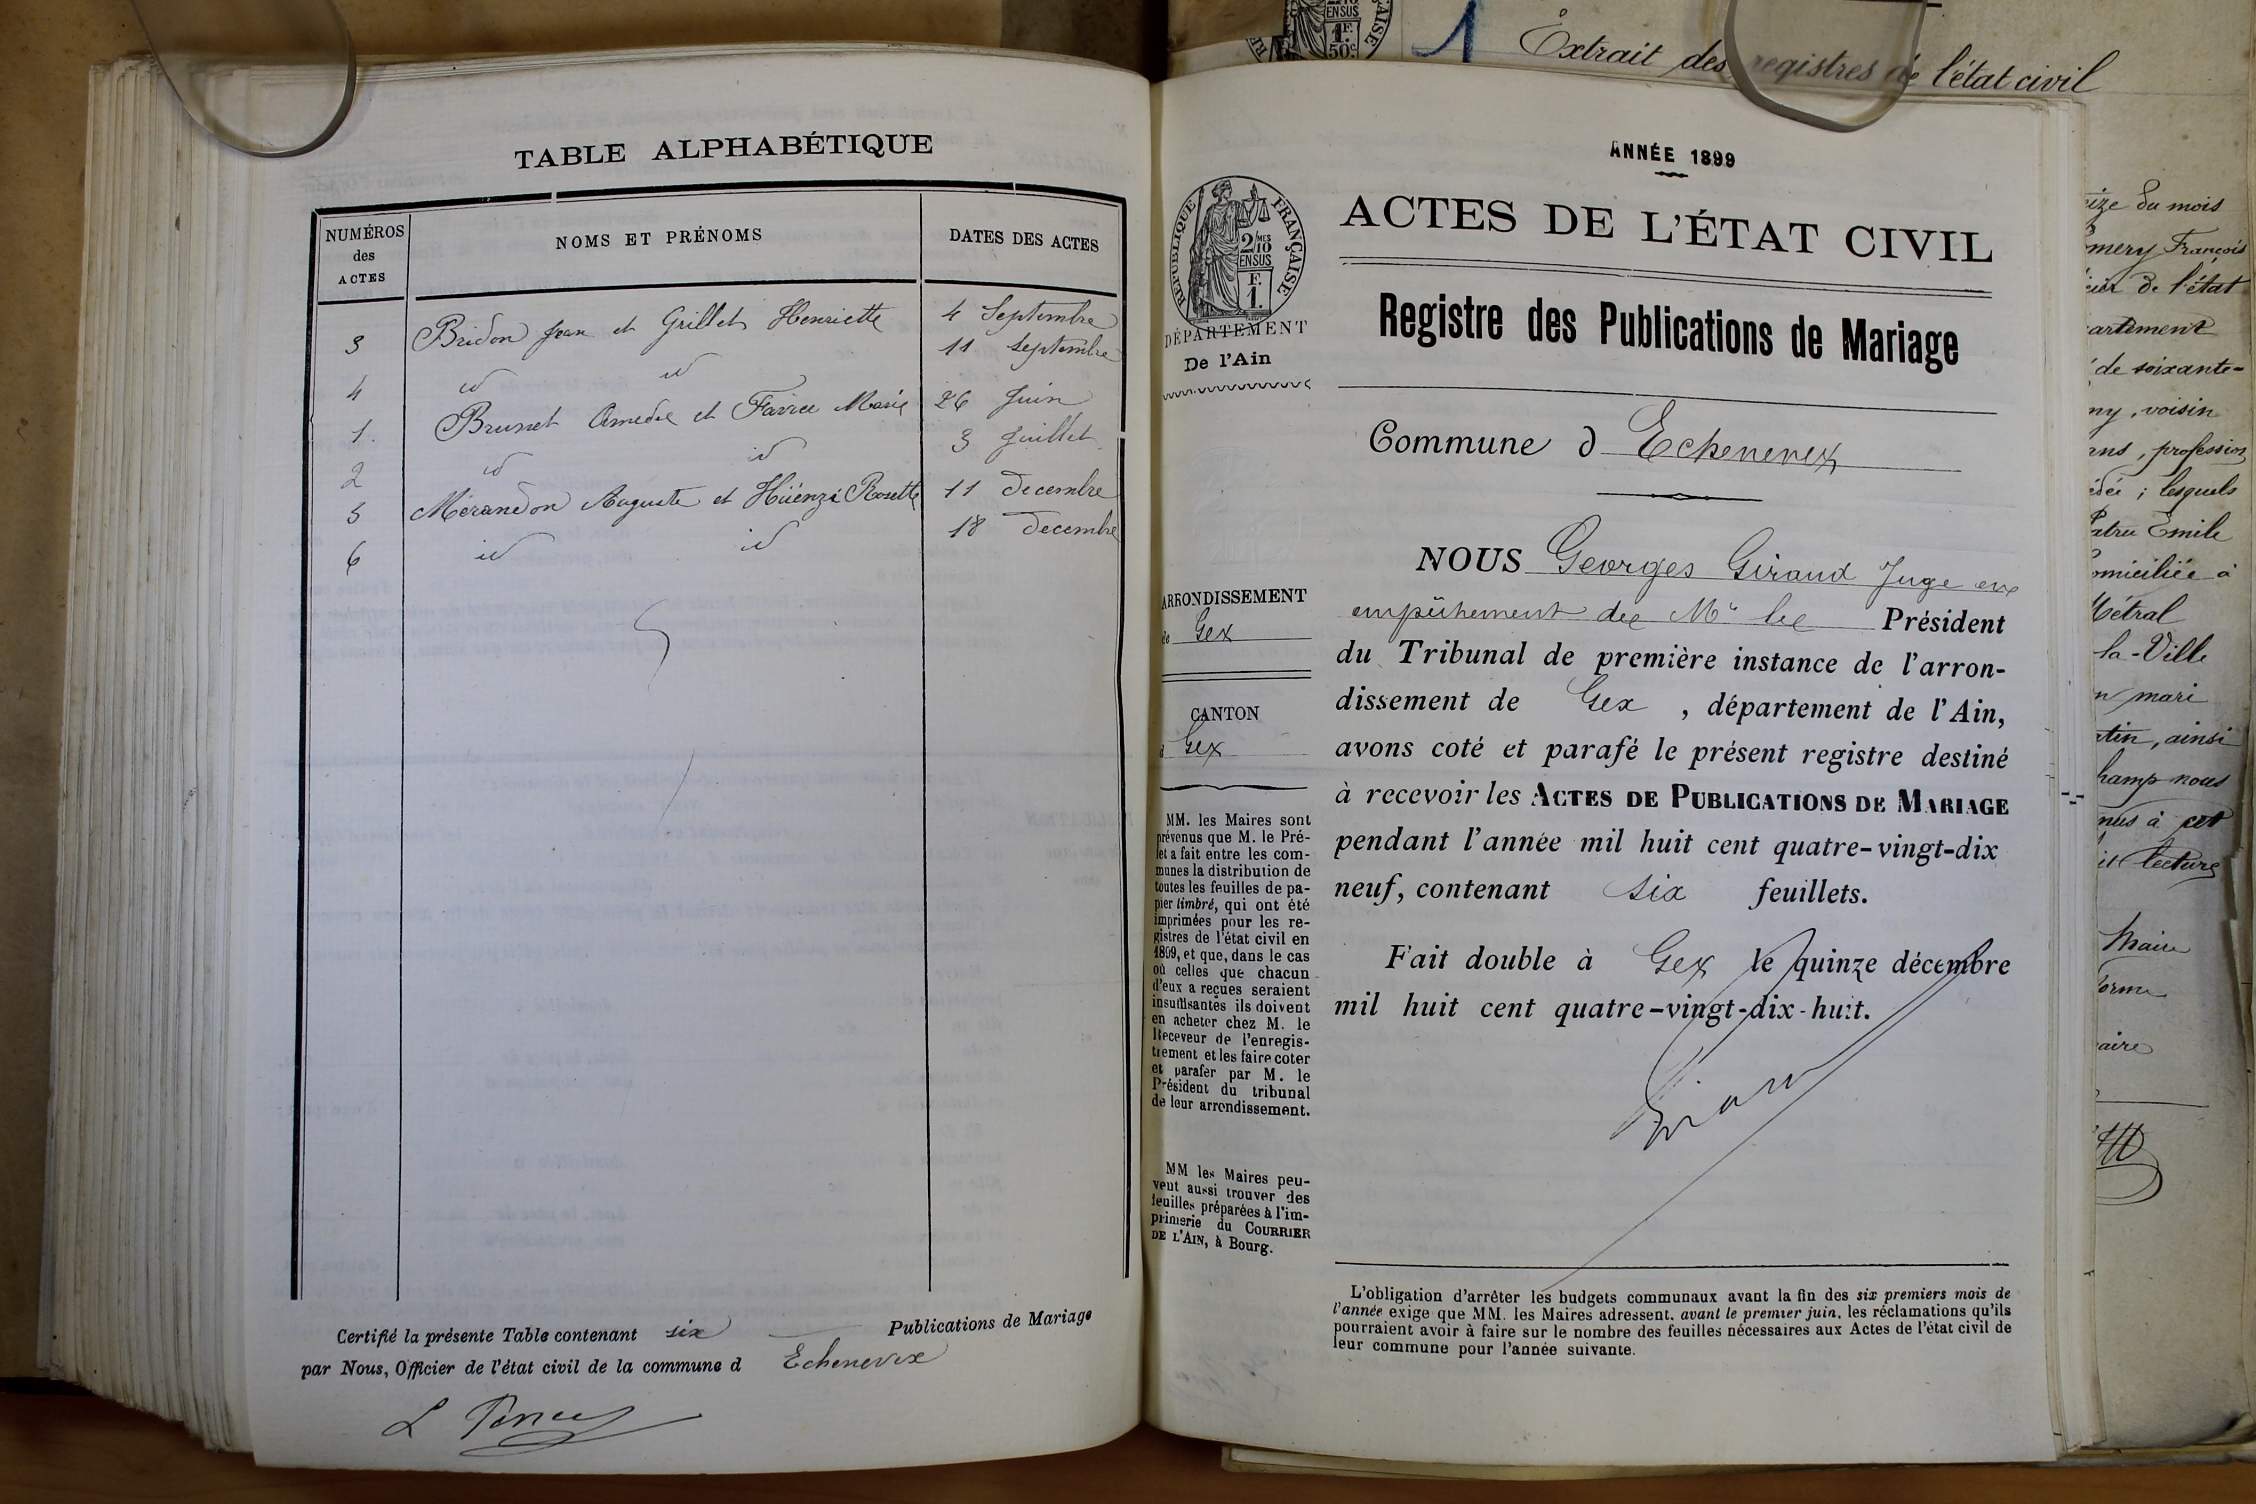 TABLE ALPHABÉTIQUE
NUMÉROS des ACTES
NOMS ET PRÉNOMS
DATES DES ACTES
3 Bridon Jean et Grillet Henriette 4 Septembre
4 id id 11 Septembre
1. Brunet Amedée et Favre Marie 26 Juin
2 id id 3 Juillet
5 Mérandon Auguste et Hüenzi Rosette 11 Decembre
6 id id 18 Decembre
Certifié la présente Table contenant six Publications de Mariage
par Nous, Officier de l'état civil de la commune d Echenevex
ANNÉE 1899
ACTES DE L'ÉTAT CIVIL
Registre des Publications de Mariage
Commune d Echenevex
RÉPUBLIQUE FRANÇAISE
2/10 MES
EN SUS
F.
1.
DÉPARTEMENT
De l'Ain
ARRONDISSEMENT
de Gex
CANTON
d Gex
MM. les Maires sont
prévenus que M. le Pré-
fet a fait entre les com-
munes la distribution de
toutes les feuilles de pa-
pier timbré, qui ont été
imprimées pour les re-
gistres de l'état civil en
1899, et que, dans le cas
où celles que chacun
d'eux a reçues seraient
insuffisantes ils doivent
en acheter chez M. le
Receveur de l'enregis-
trement et les faire coter
et parafer par M. le
Président du tribunal
de leur arrondissement.
MM les Maires peu-
vent aussi trouver des
feuilles préparées à l'im-
primerie du COURRIER
DE L'AIN, à Bourg.
NOUS Georges Giraud Juge en
empêchement de Mr le Président
du Tribunal de première instance de l'arron-
dissement de Gex , département de l'Ain,
avons coté et parafé le présent registre destiné
à recevoir les ACTES DE PUBLICATIONS DE MARIAGE
pendant l'année mil huit cent quatre-vingt-dix
neuf, contenant six feuillets.
Fait double à Gex le quinze décembre
mil huit cent quatre-vingt-dix-huit.
L'obligation d'arrêter les budgets communaux avant la fin des six premiers mois de
l'année exige que MM. les Maires adressent, avant le premier juin, les réclamations qu'ils
pourraient avoir à faire sur le nombre des feuilles nécessaires aux Actes de l'état civil de
leur commune pour l'année suivante.
EN SUS
1F.
50c
1
Extrait des registres de l'état civil
du mois
François
de l'état
de soixante-
voisin
profession
lesquels
Emile
à
la-Ville
mari
ainsi
nous
à cet
lecture
Maire